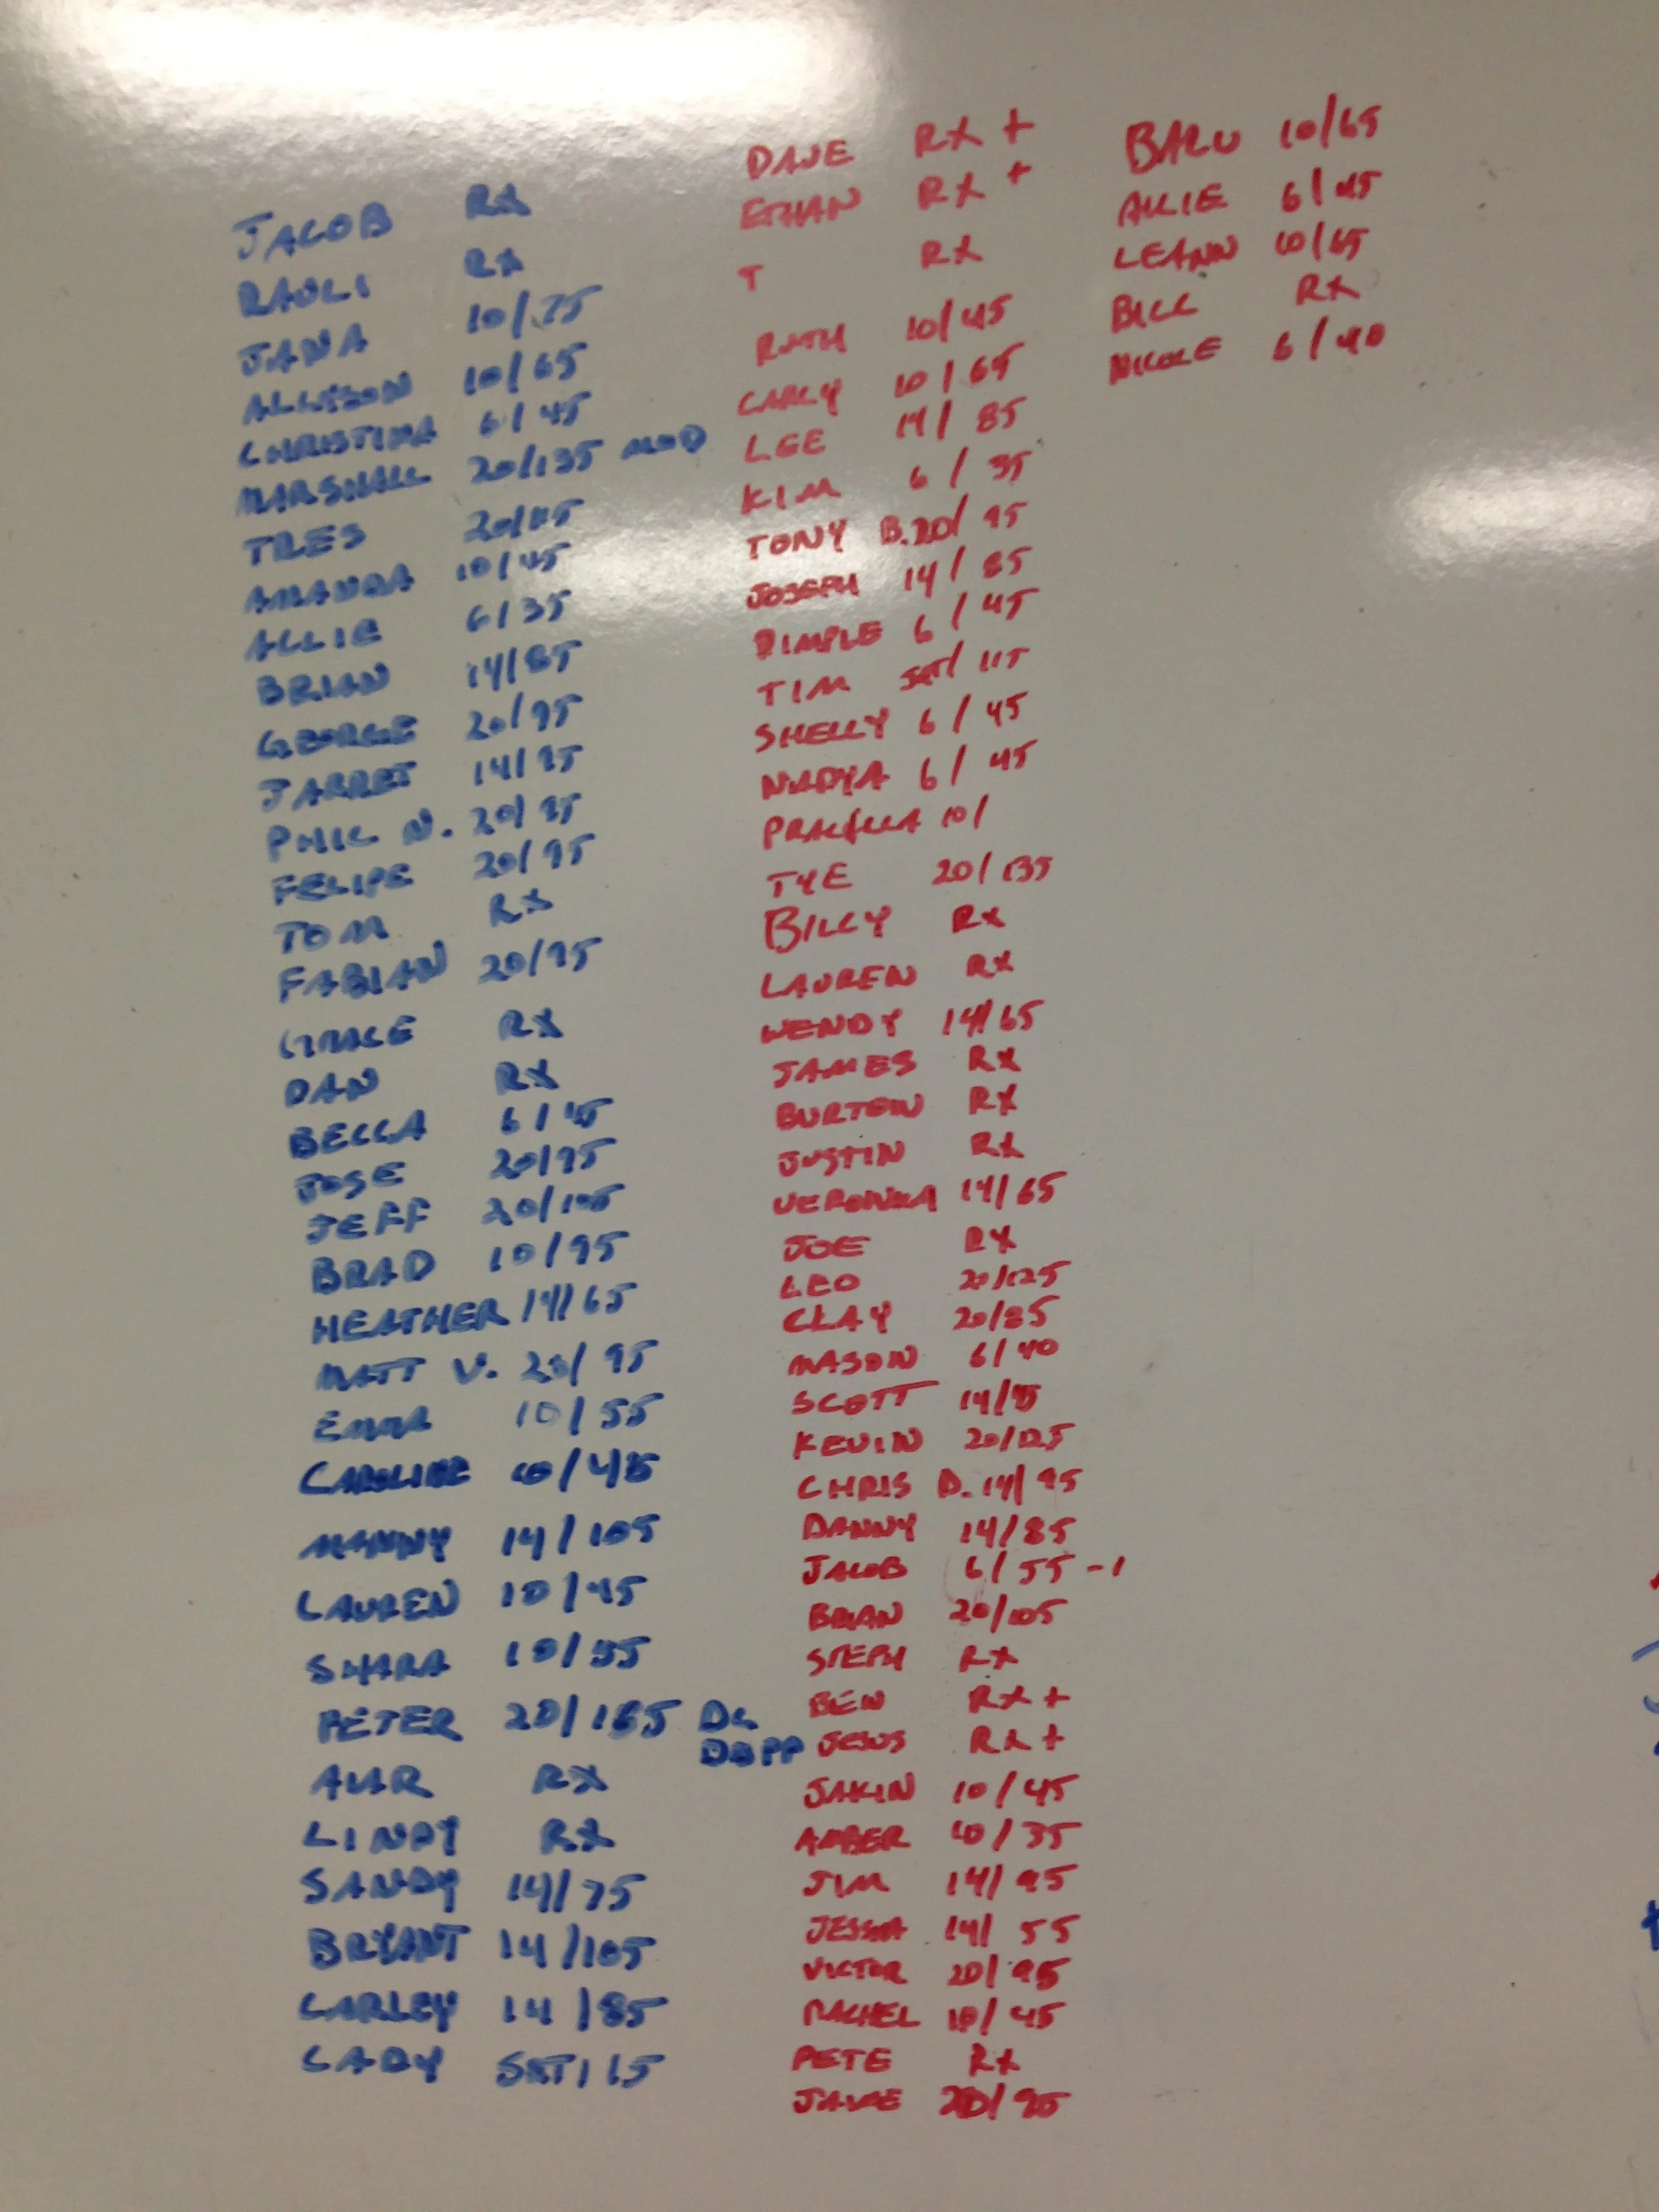 JACOB RX
RAULI RX
JANA 10/75
ALLYSON 10/65
CHRISTINA 6/45
MARSHALL 20/135 MOD
TRES
AMANDA 10/45
ALLIE 6/35
BRIAN 14/85
GEORGE 20/95
JARRET 14/95
PHIL N. 20/95
FELIPE 20/95
TOM RX
FABIAN 20/95
GRACE RX
DAN RX
BECCA 6/45
JOSE 20/95
JEFF 20/105
BRAD 10/95
HEATHER 14/65
MATT V. 20/95
EMMA 10/55
CAROLINE 10/45
MANNY 14/105
LAUREN 10/45
SHARA 10/55
PETER 20/165 DL
DROPP
RX
LINDY RX
SANDY 14/75
BRYANT 14/105
CARLEY 14/85
CADY
DAVE RX +
ETHAN RX +
T RX
RUTH 10/45
CARLY 10/65
LEE 14/85
KIM 6/35
TONY B. 20/95
JOSEPH 14/85
DIMPLE 6/45
TIM /115
SHELLY 6/45
NADYA 6/45
10/
TYE 20/135
BILLY RX
LAUREN RX
WENDY 14/65
JAMES RX
BURTON RX
JUSTIN RX
VERONIKA 14/65
JOE RX
LEO 20/125
CLAY 20/85
MASON 6/40
SCOTT 14/95
KEVIN 20/125
CHRIS D. 14/95
DANNY 14/85
JACOB 6/55 -1
BRIAN 20/105
STEPH RX
BEN RX +
RX +
JAKIN 10/45
AMBER 10/35
JIM 14/95
14/55
VICTOR 20/95
RACHEL 10/45
PETE RX
20/95
10/65
ALLIE 6/45
LEANN 10/65
BILL RX
NICOLE 6/40